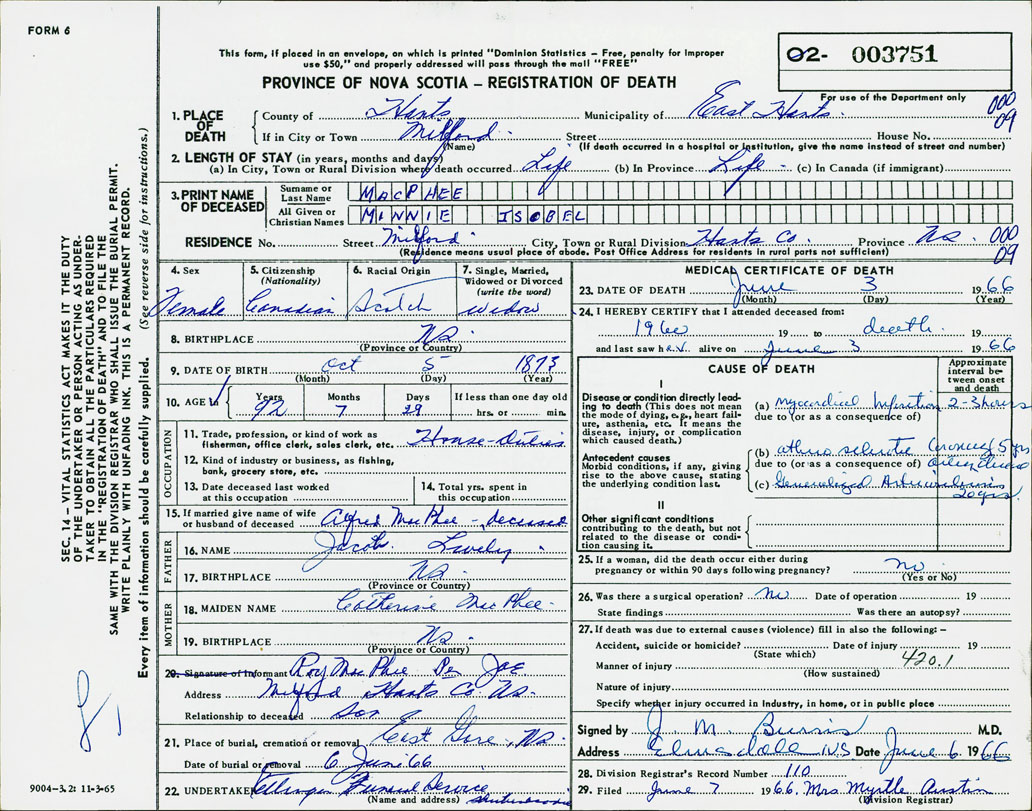 FORM 6
This form, if placed in an envelope, on which is printed "Dominion Statistics – Free, penalty for improper
use $50," and properly addressed will pass through the mail "FREE"
PROVINCE OF NOVA SCOTIA – REGISTRATION OF DEATH
02- 003751
For use of the Department only
000
09
1. PLACE OF DEATH
County of Hants Municipality of East Hants
If in City or Town Milford Street House No.
(Name) (If death occurred in a hospital or institution, give the name instead of street and number)
2. LENGTH OF STAY (in years, months and days)
(a) In City, Town or Rural Division where death occurred Life (b) In Province Life - (c) In Canada (if immigrant)
3. PRINT NAME OF DECEASED
Surname or Last Name MACPHEE
All Given or Christian Names MINNIE ISOBEL
RESIDENCE No. Street Milford City, Town or Rural Division Hants Co. Province NS. 000
09
(Residence means usual place of abode. Post Office Address for residents in rural parts not sufficient)
4. Sex Female
5. Citizenship (Nationality) Canadian
6. Racial Origin Scotch
7. Single, Married, Widowed or Divorced (write the word) widow
8. BIRTHPLACE NS
(Province or Country)
9. DATE OF BIRTH Oct 5 1873
(Month) (Day) (Year)
10. AGE Years 92 Months 7 Days 29 If less than one day old hrs. or min.
OCCUPATION
11. Trade, profession, or kind of work as fisherman, office clerk, sales clerk, etc. House-duties
12. Kind of industry or business, as fishing, bank, grocery store, etc.
13. Date deceased last worked at this occupation
14. Total yrs. spent in this occupation
15. If married give name of wife or husband of deceased Alfred MacPhee - deceased
FATHER
16. NAME Jacob Lively
17. BIRTHPLACE NS.
(Province or Country)
MOTHER
18. MAIDEN NAME Catherine MacPhee
19. BIRTHPLACE NS
(Province or Country)
20. Signature of Informant Roy MacPhee Per JAE
Address Milford Hants Co NS.
Relationship to deceased Son
21. Place of burial, cremation or removal East Gore, NS
Date of burial or removal 6 June 66
22. UNDERTAKER Ettinger Funeral Service
(Name and address) Shubenacadie
MEDICAL CERTIFICATE OF DEATH
23. DATE OF DEATH June 3 1966
(Month) (Day) (Year)
24. I HEREBY CERTIFY that I attended deceased from:
1960 19 to death 19
and last saw her alive on June 3 1966
CAUSE OF DEATH
Approximate interval between onset and death
I
Disease or condition directly leading to death (This does not mean the mode of dying, e.g., heart failure, asthenia, etc. It means the disease, injury or complication which caused death.)
(a) Myocardial Infarction 2-3 hours
due to (or as a consequence of)
Antecedent causes
Morbid conditions, if any, giving rise to the above cause, stating the underlying condition last.
(b) Coronary 15 yrs
due to (or as a consequence of) artery disease
(c) Generalized Arteriosclerosis
20 yrs
II
Other significant conditions
contributing to the death, but not related to the disease or condition causing it.
25. If a woman, did the death occur either during pregnancy or within 90 days following pregnancy? no
(Yes or No)
26. Was there a surgical operation? No Date of operation 19
State findings Was there an autopsy?
27. If death was due to external causes (violence) fill in also the following: –
Accident, suicide or homicide? Date of injury 19
(State which)
Manner of injury 420.1
(How sustained)
Nature of injury
Specify whether injury occurred in Industry, in home, or in public place
Signed by J. M. Burris M.D.
Address Elmsdale NS Date June 6 1966
28. Division Registrar's Record Number 110
29. Filed June 7 1966. Mrs. Myrtle Austin
(Division Registrar)
SEC. 14 – VITAL STATISTICS ACT MAKES IT THE DUTY
OF THE UNDERTAKER OR PERSON ACTING AS UNDER-
TAKER TO OBTAIN ALL THE PARTICULARS REQUIRED
IN THE "REGISTRATION OF DEATH" AND TO FILE THE
SAME WITH THE DIVISION REGISTRAR WHO SHALL ISSUE THE BURIAL PERMIT.
WRITE PLAINLY WITH UNFADING INK. THIS IS A PERMANENT RECORD.
Every item of information should be carefully supplied. (See reverse side for instructions.)
9004-3.2: 11-3-65